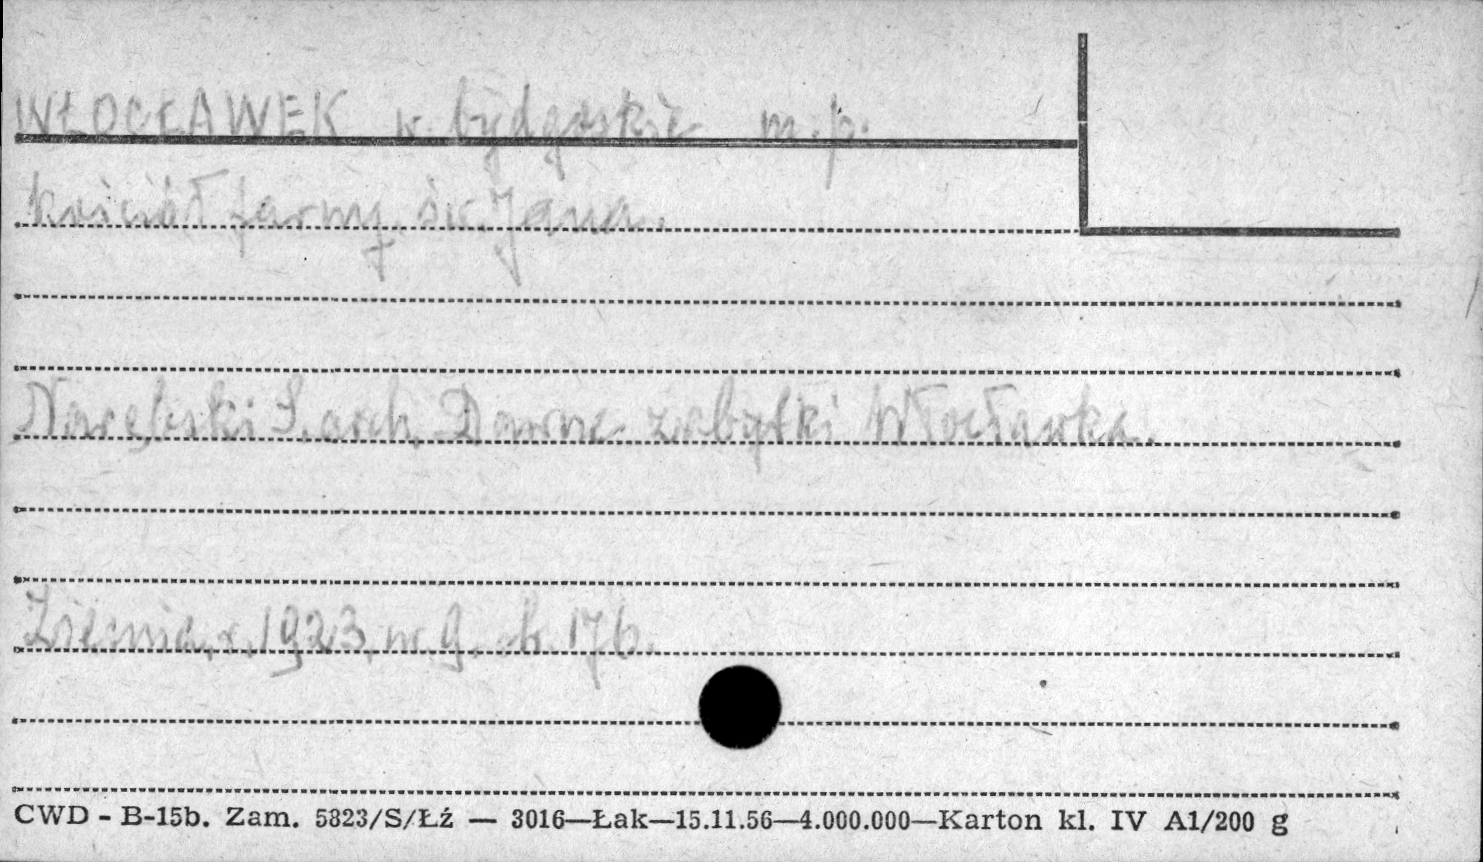 WŁOCŁAWEK w. bydgoskie m.p.
kościół farny św. Jana.
Narębski S. arch. Dawne zabytki Włocławka.
Ziemia, r. 1923, nr. 9. str. 176.
CWD - B-15b. Zam. 5823/S/Łź — 3016—Łak—15.11.56—4.000.000—Karton kl. IV A1/200 g